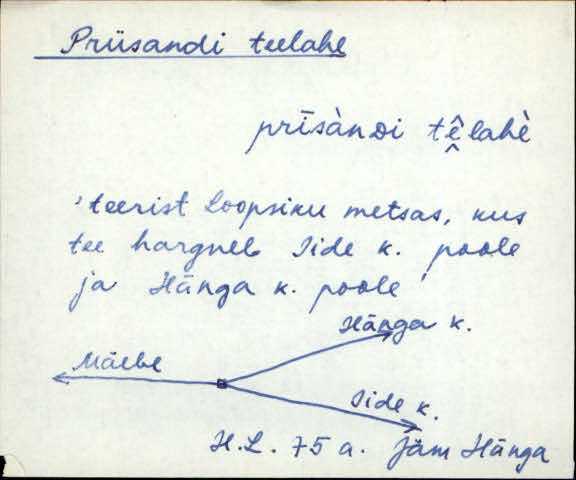 Priisandi teelahe
prīsàndi tê̬lahè
'teerist Loopsiku metsas, kus
tee hargneb Iide k. poole
ja Hänga k. poole'
Hänga k.
Mäebe
Iide k.
H.L. 75 a. Jäm Hänga